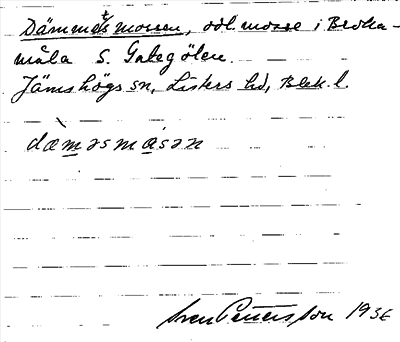 Dämmetsmossen, odl. mosse i Broka-
måla S. Gategölen.
Jämshögs sn, Listers hd, Blek. l.
dæ̀məsmȧsən
Sven Petersson 1936